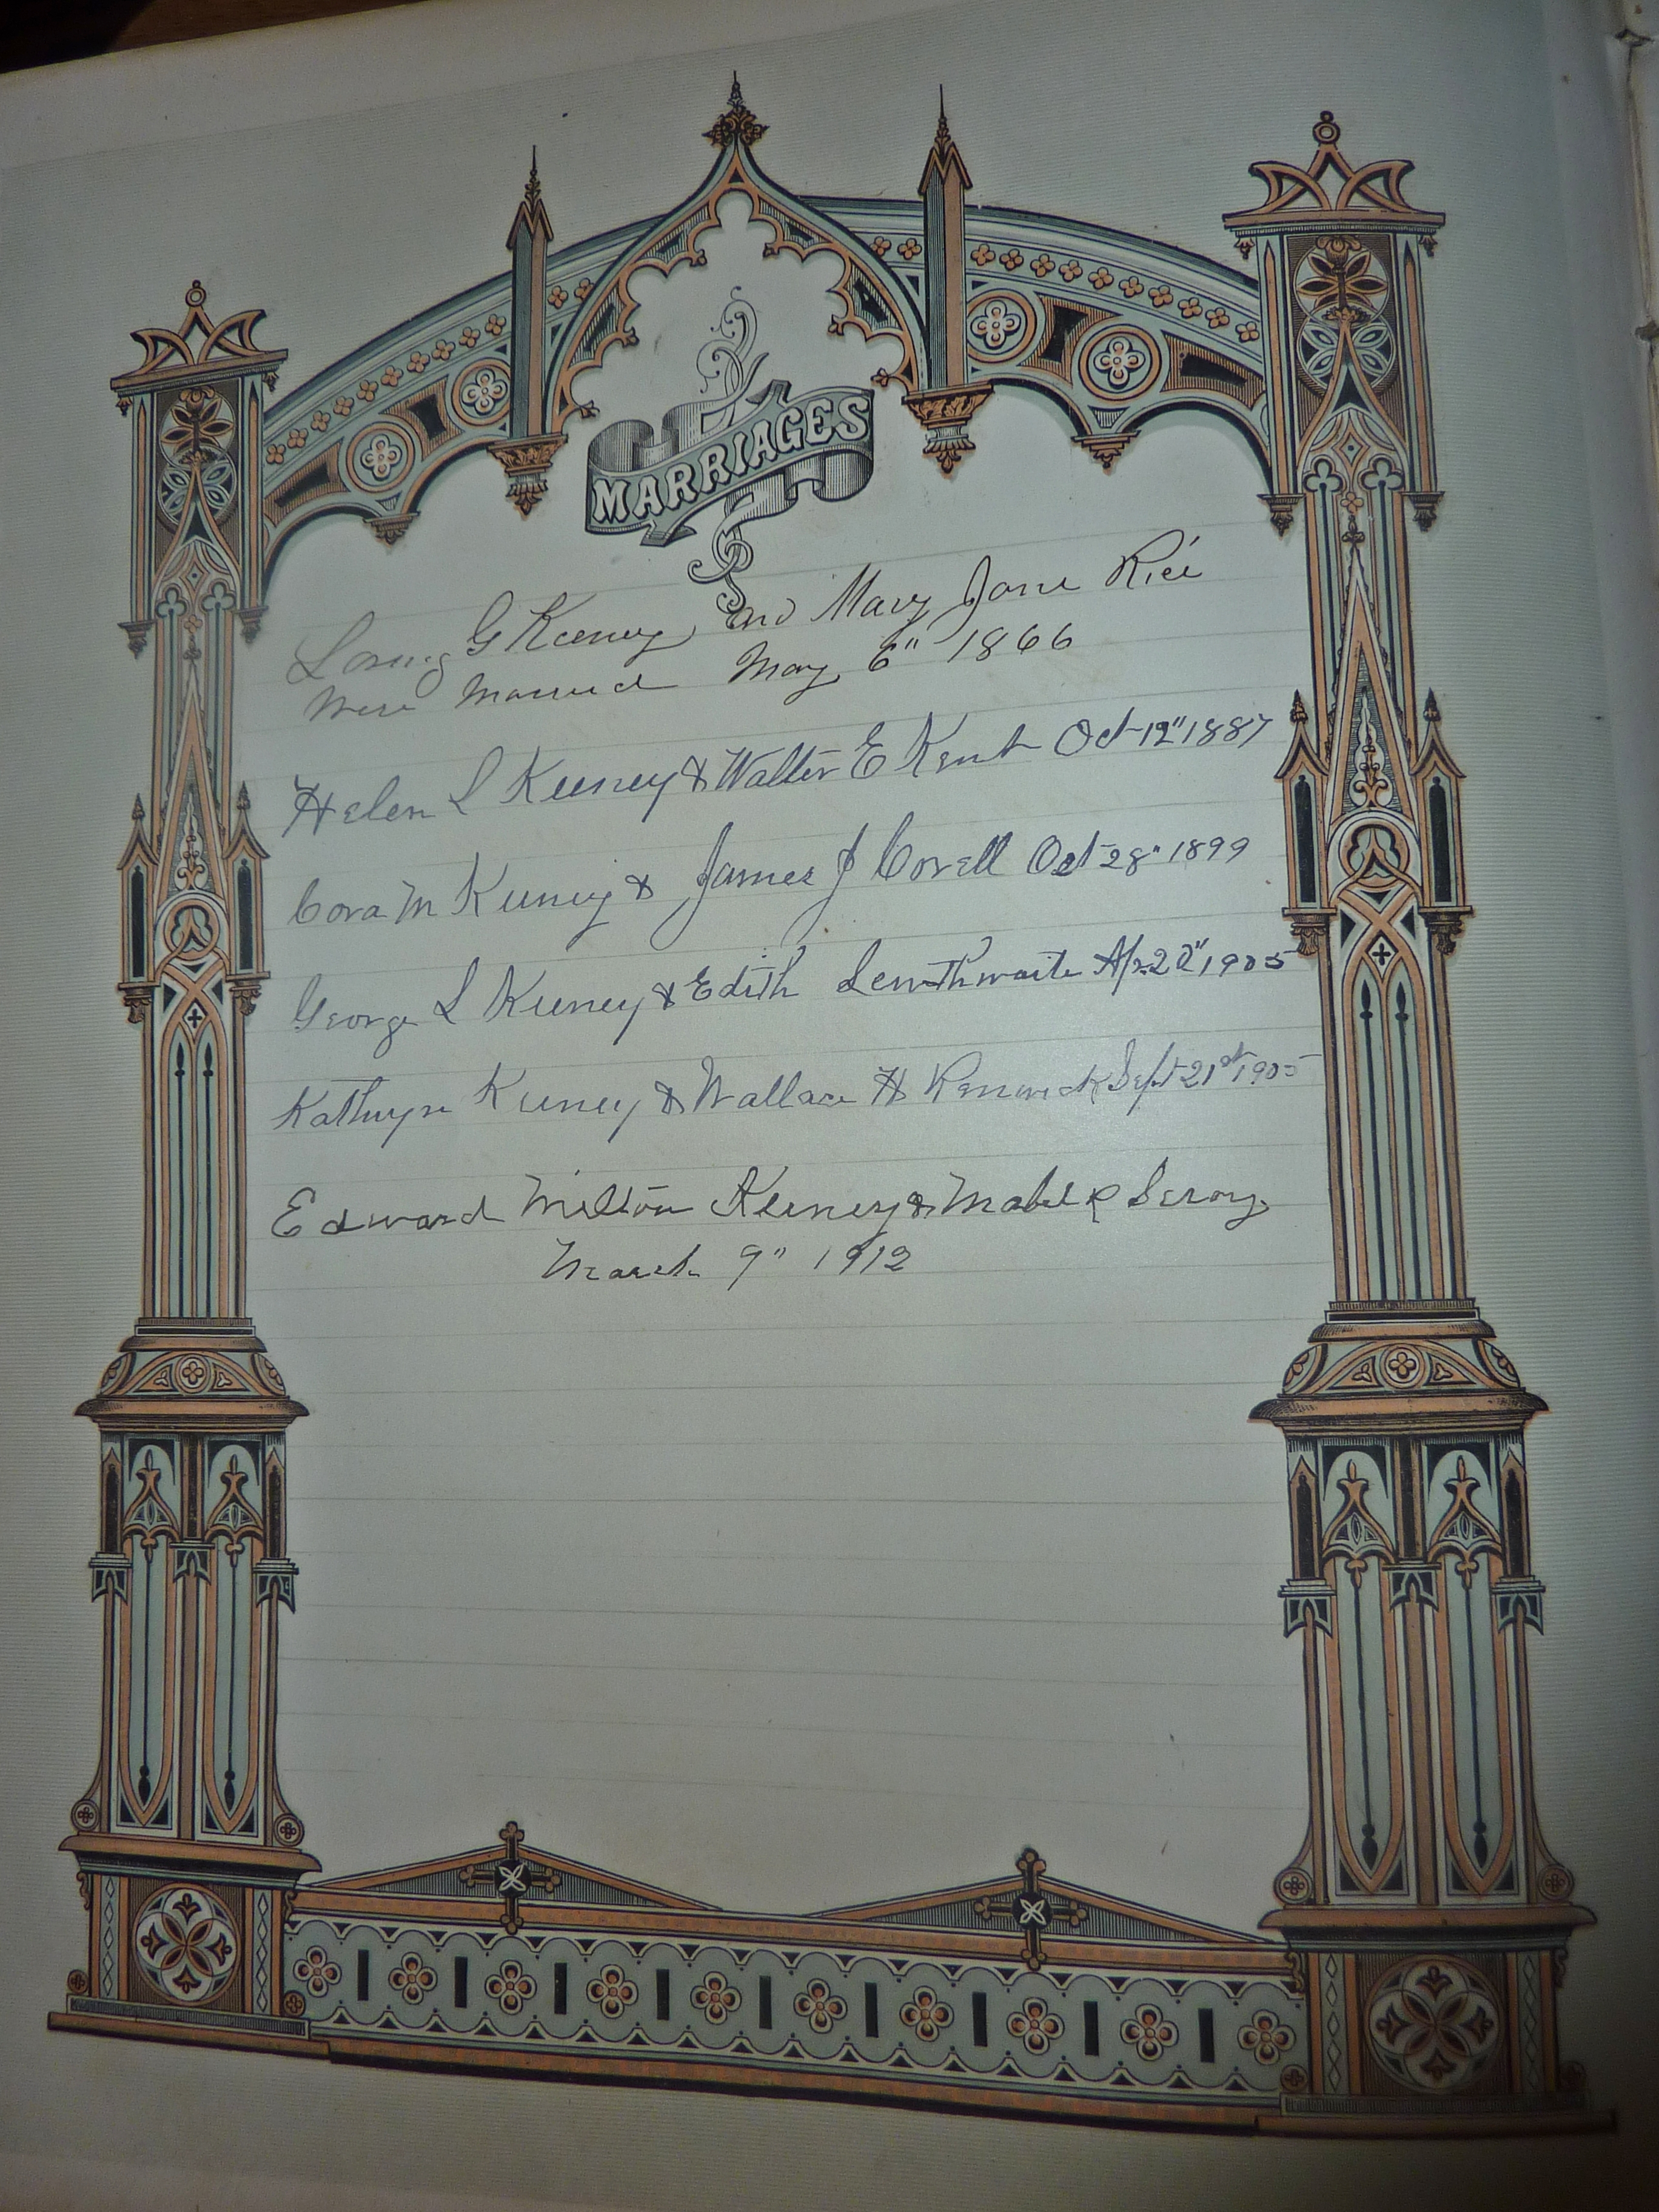 MARRIAGES
Loring G Keeney and Mary Jane Rice
Were Married May 6" 1866
Helen L Keeney & Walter E Kent Oct 12" 1887
Cora M Keeney & James J Covell Oct 28" 1899
George L Keeney & Edith Lewthwaite Ap. 20" 1905
Kathryn Keeney & Wallace H Renwick Sept 21st 1905
Edward Milton Keeney & Mabel R
March 9" 1912